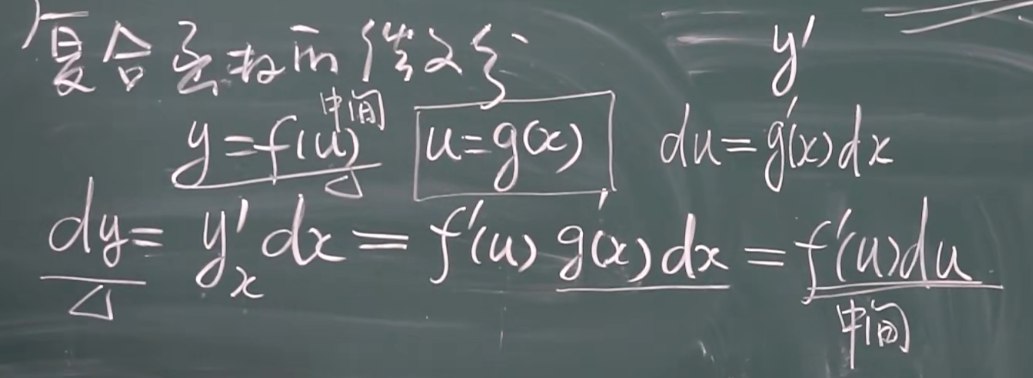 复合函数的微分 y′
中间
y=f(u) u=g(x) du=g′(x)dx
△
dy=y′ₓdx=f′(u)g′(x)dx=f′(u)du
△ 中间